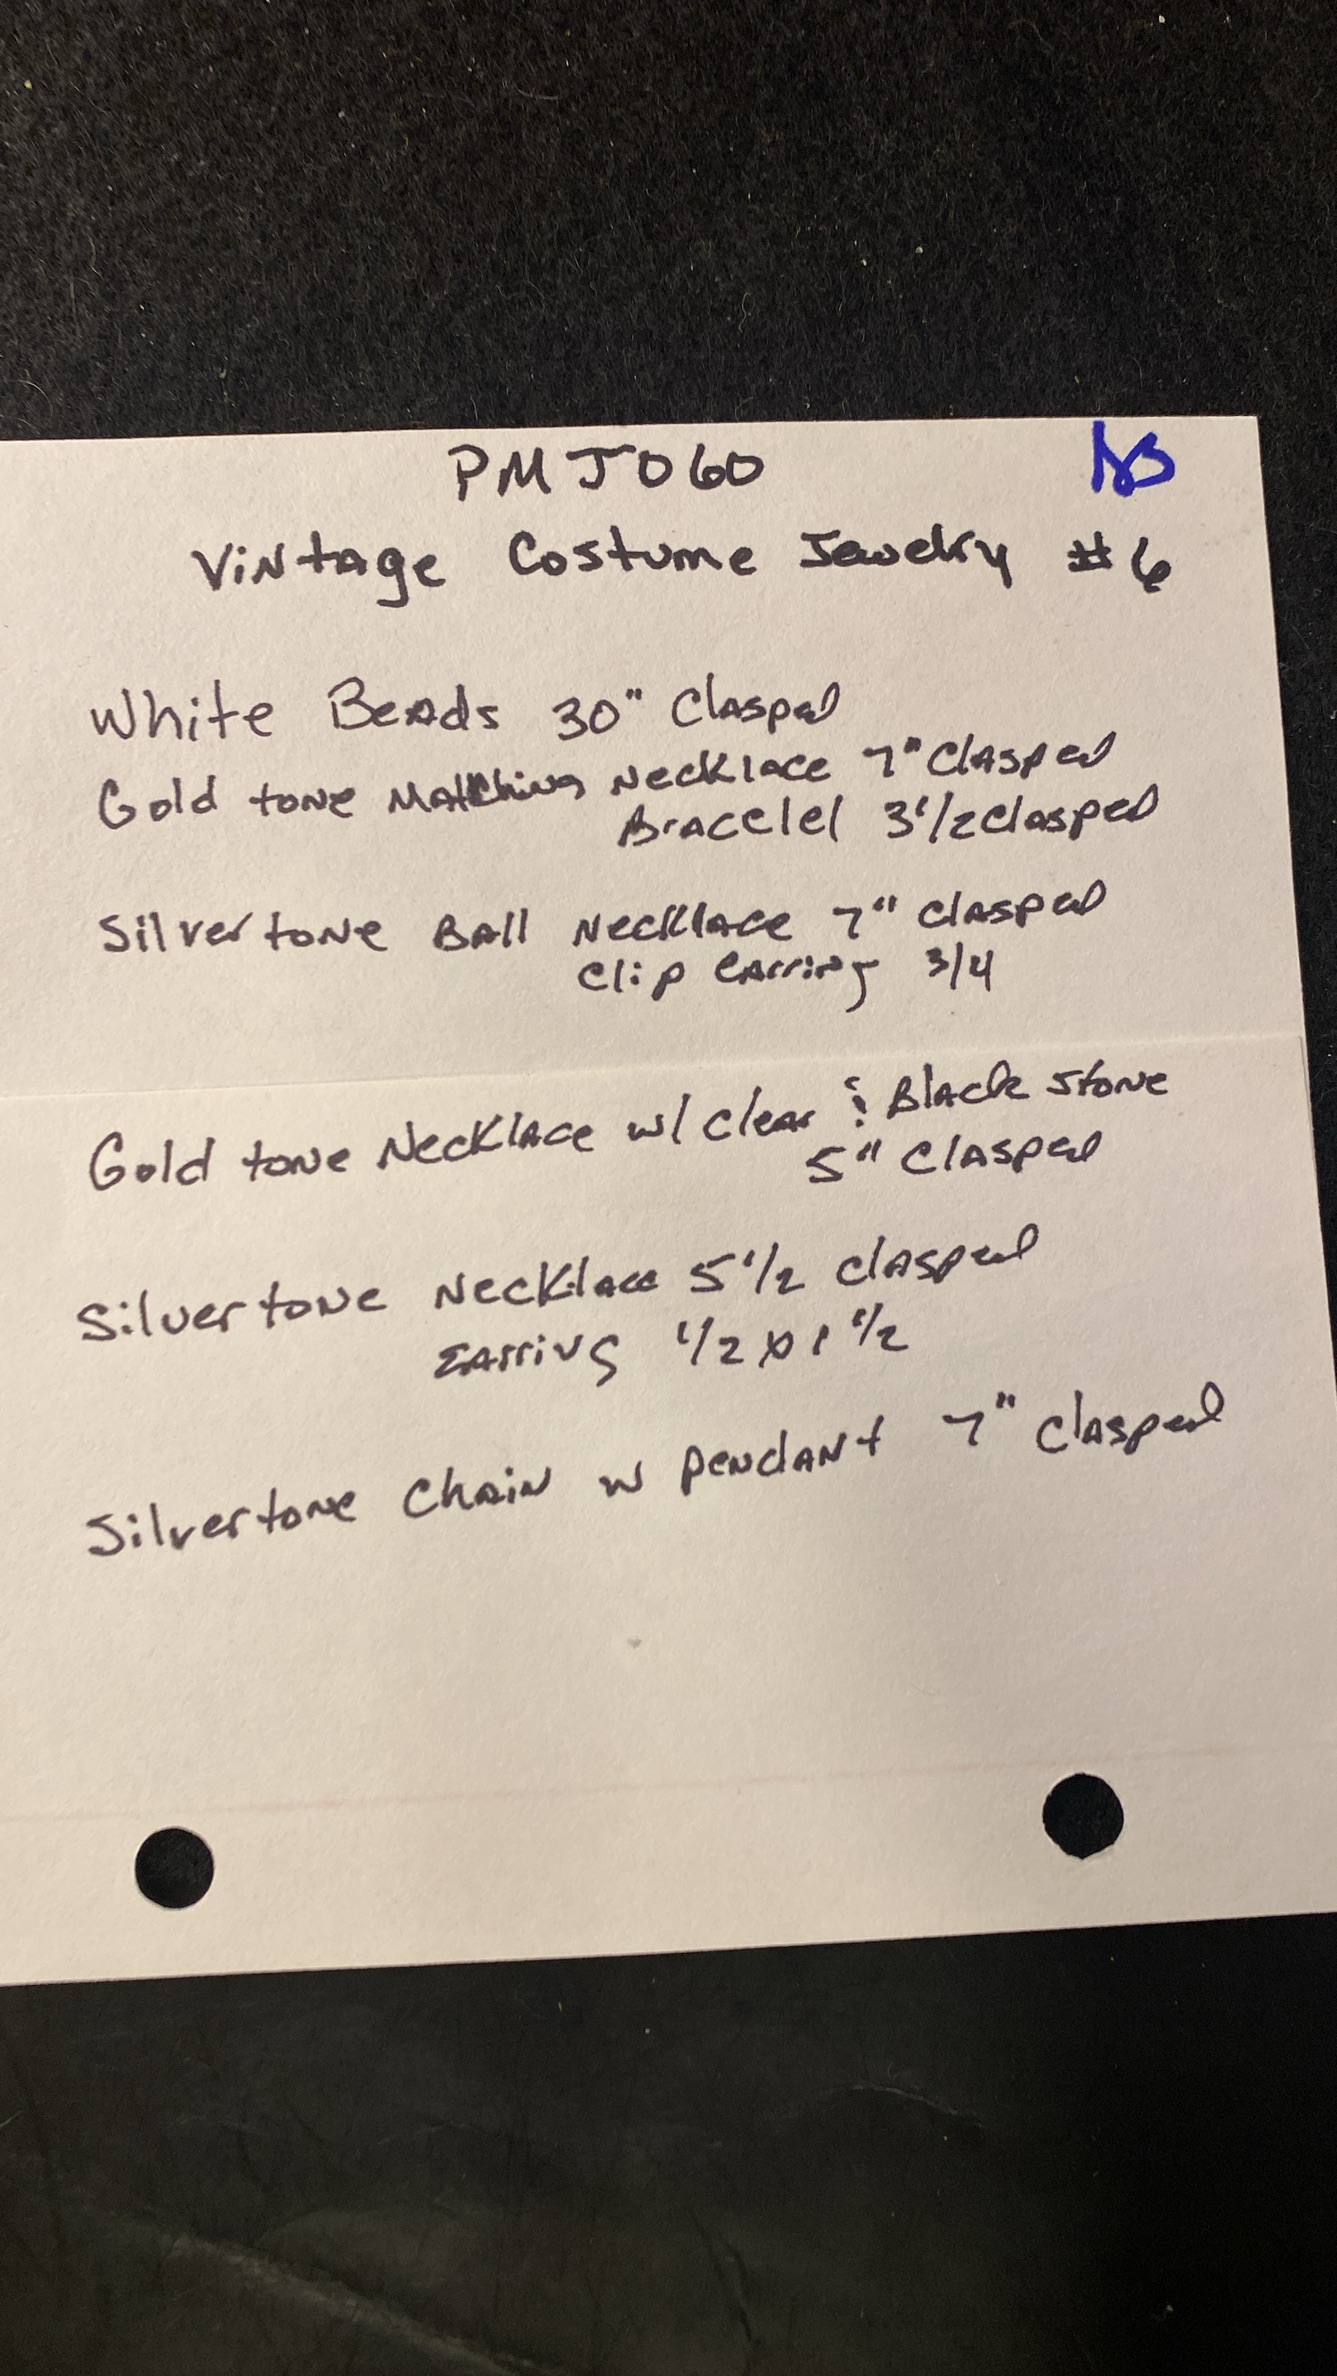 PMJ060
Vintage Costume Jewelry #6
White Beads 30" Clasped
Gold tone Matching Necklace 7" Clasped
Bracelet 3 1/2 Clasped
Silvertone Ball Necklace 7" Clasped
Clip Earring 3/4
Gold tone Necklace w/ Clear & Black Stone
5" Clasped
Silvertone Necklace 5 1/2 Clasped
Earring 1/2 x 1 1/2
Silvertone Chain w Pendant 7" Clasped